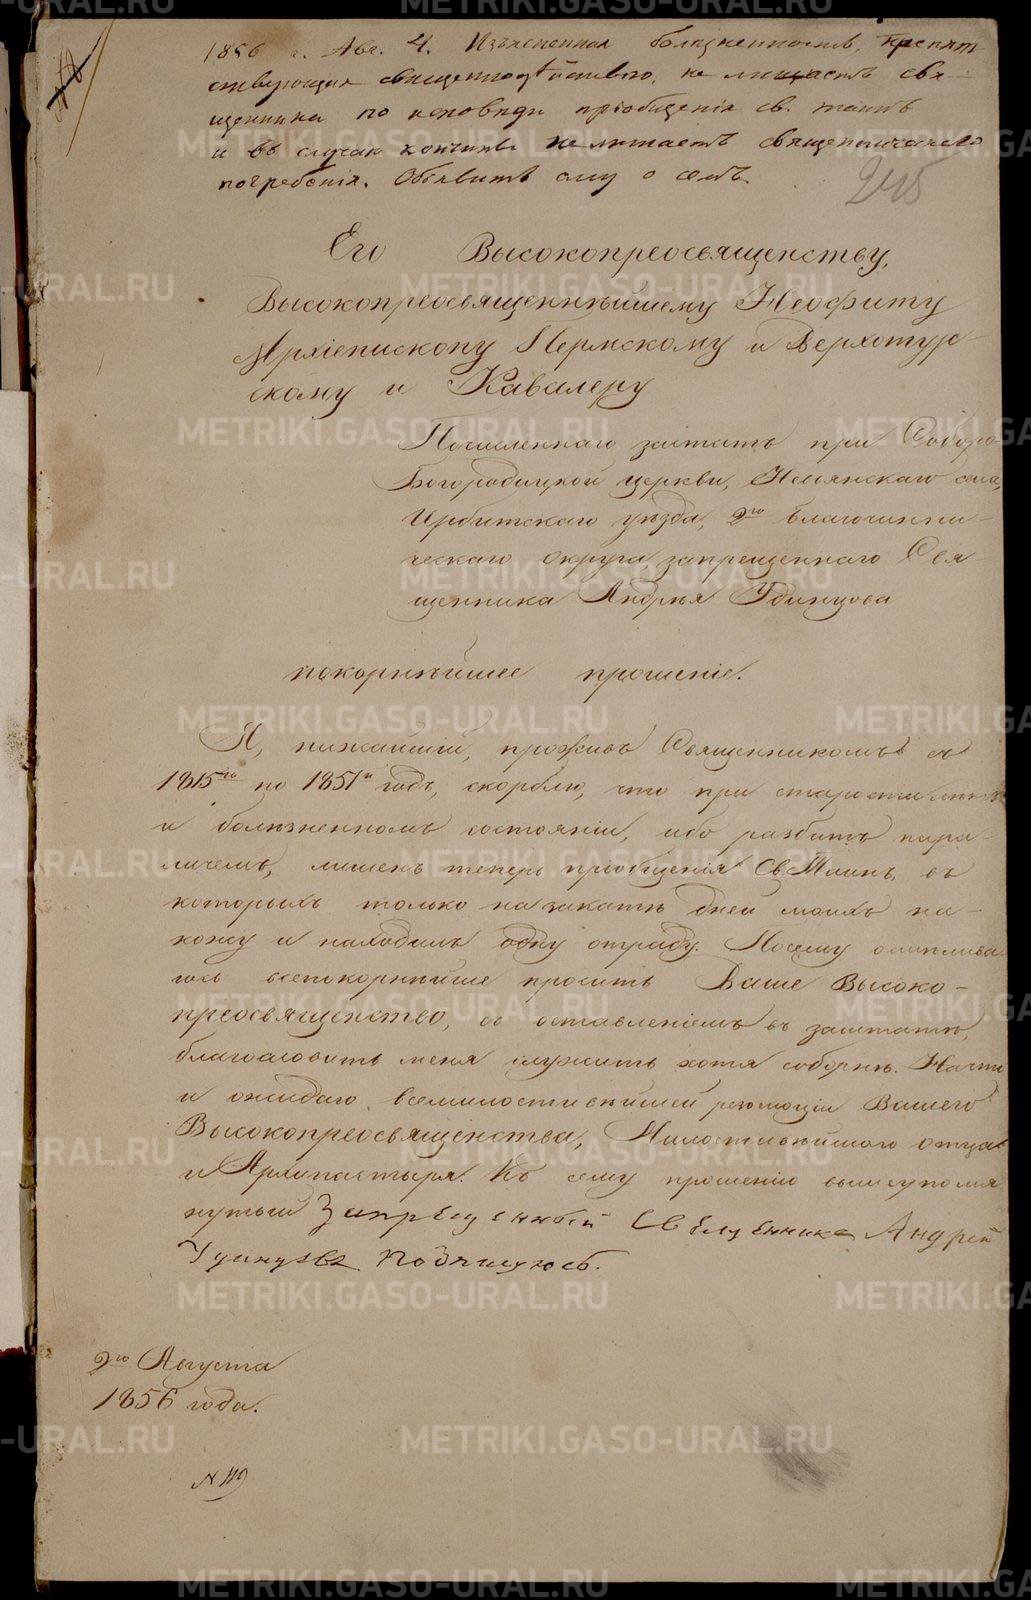 1856 г. Авг. 4. Изъясненная болѣзненность, препят
ствующая священнодѣйствію, не лишаетъ свя-
щенника по исповѣди пріобщенія св. таинъ
и въ случаѣ кончины не лишаетъ священническаго
погребенія. Объявить ему о семъ.
248
Его Высокопреосвященству,
Высокопреосвященнѣйшему Неофиту
Архіепископу Пермскому и Верхотур-
скому и Кавалеру
Почисленнаго заштатъ при Соборо-
Богородицкой церкви, Невьянскаго села,
Ирбитскаго уѣзда, 2го благочинни-
ческаго округа запрещеннаго Свя
щенника Андрея Удинцова
покорнѣйшее прошеніе.
Я, нижайшій, проживъ Священникомъ съ
1815го по 1851й годъ, скорблю, что при старости лѣтъ
и болѣзненномъ состояніи, ибо разбитъ пара-
личемъ, лишенъ теперь пріобщенія Св. Таинъ, въ
которыхъ только на закатѣ дней моихъ на-
хожу и находилъ одну отраду. Посему осмѣлива
юсь всепокорнѣйше просить Ваше Высоко-
преосвященство, съ оставленіемъ въ заштатѣ,
благословить меня служить хотя соборнѣ. На что
и ожидаю всемилостивѣйшей резолюціи Вашего
Высокопреосвященства, Милостивѣйшаго отца
и Архипастыря. Къ сему прошенію вышеупомя
нутый Запрещенный Священникъ Андрей
Удинцовъ подписуюсь.
2го Августа
1856 года.
N 119
METRIKI.GASO-URAL.RU